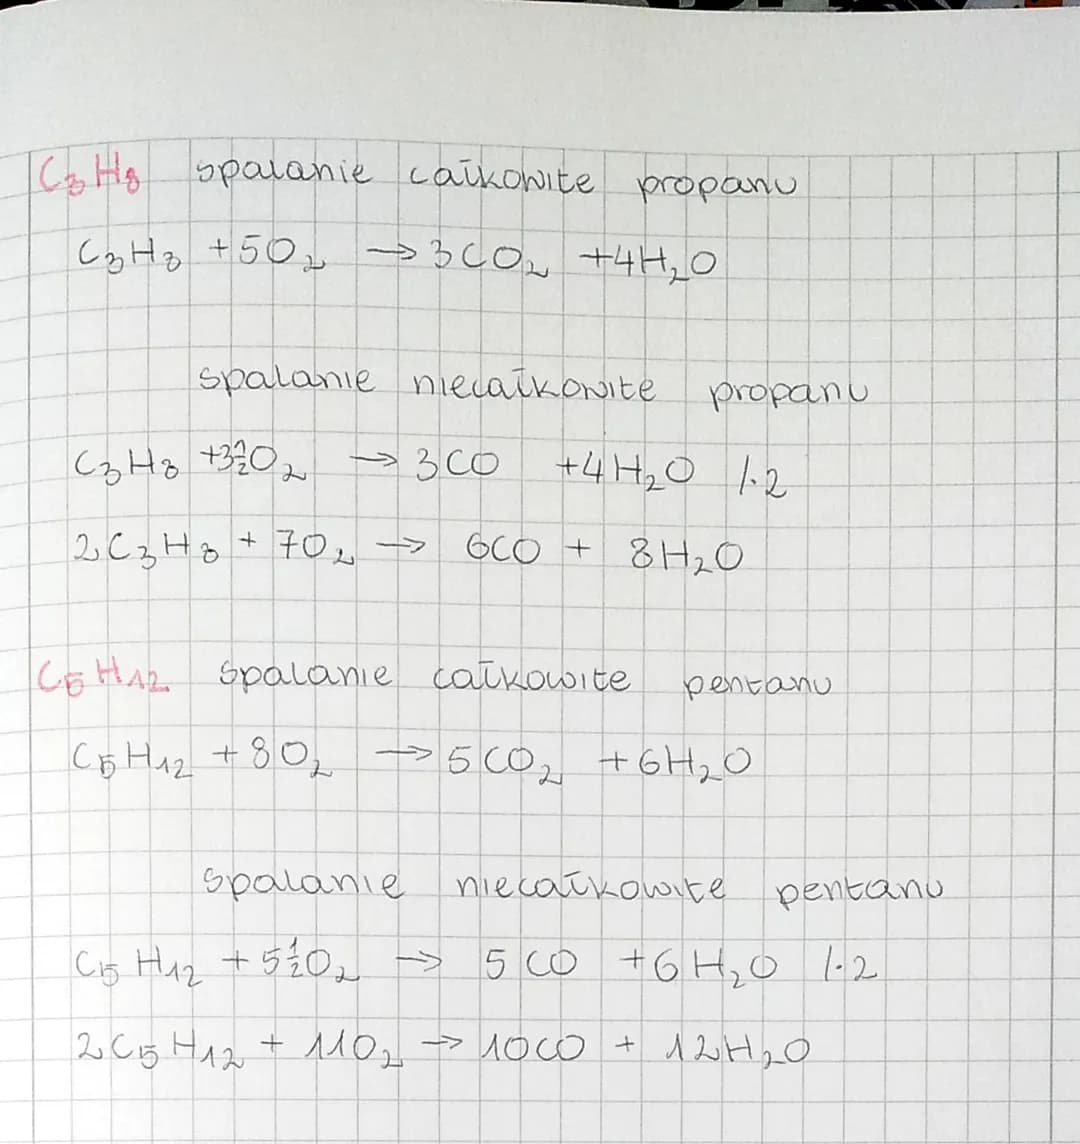 C₃H₈ spalanie całkowite propanu
C₃H₈ + 5O₂ → 3CO₂ + 4H₂O
spalanie niecałkowite propanu
C₃H₈ + 3½O₂ → 3CO + 4H₂O /·2
2C₃H₈ + 7O₂ → 6CO + 8H₂O
C₅H₁₂ spalanie całkowite pentanu
C₅H₁₂ + 8O₂ → 5CO₂ + 6H₂O
spalanie niecałkowite pentanu
C₅H₁₂ + 5½O₂ → 5CO + 6H₂O /·2
2C₅H₁₂ + 11O₂ → 10CO + 12H₂O